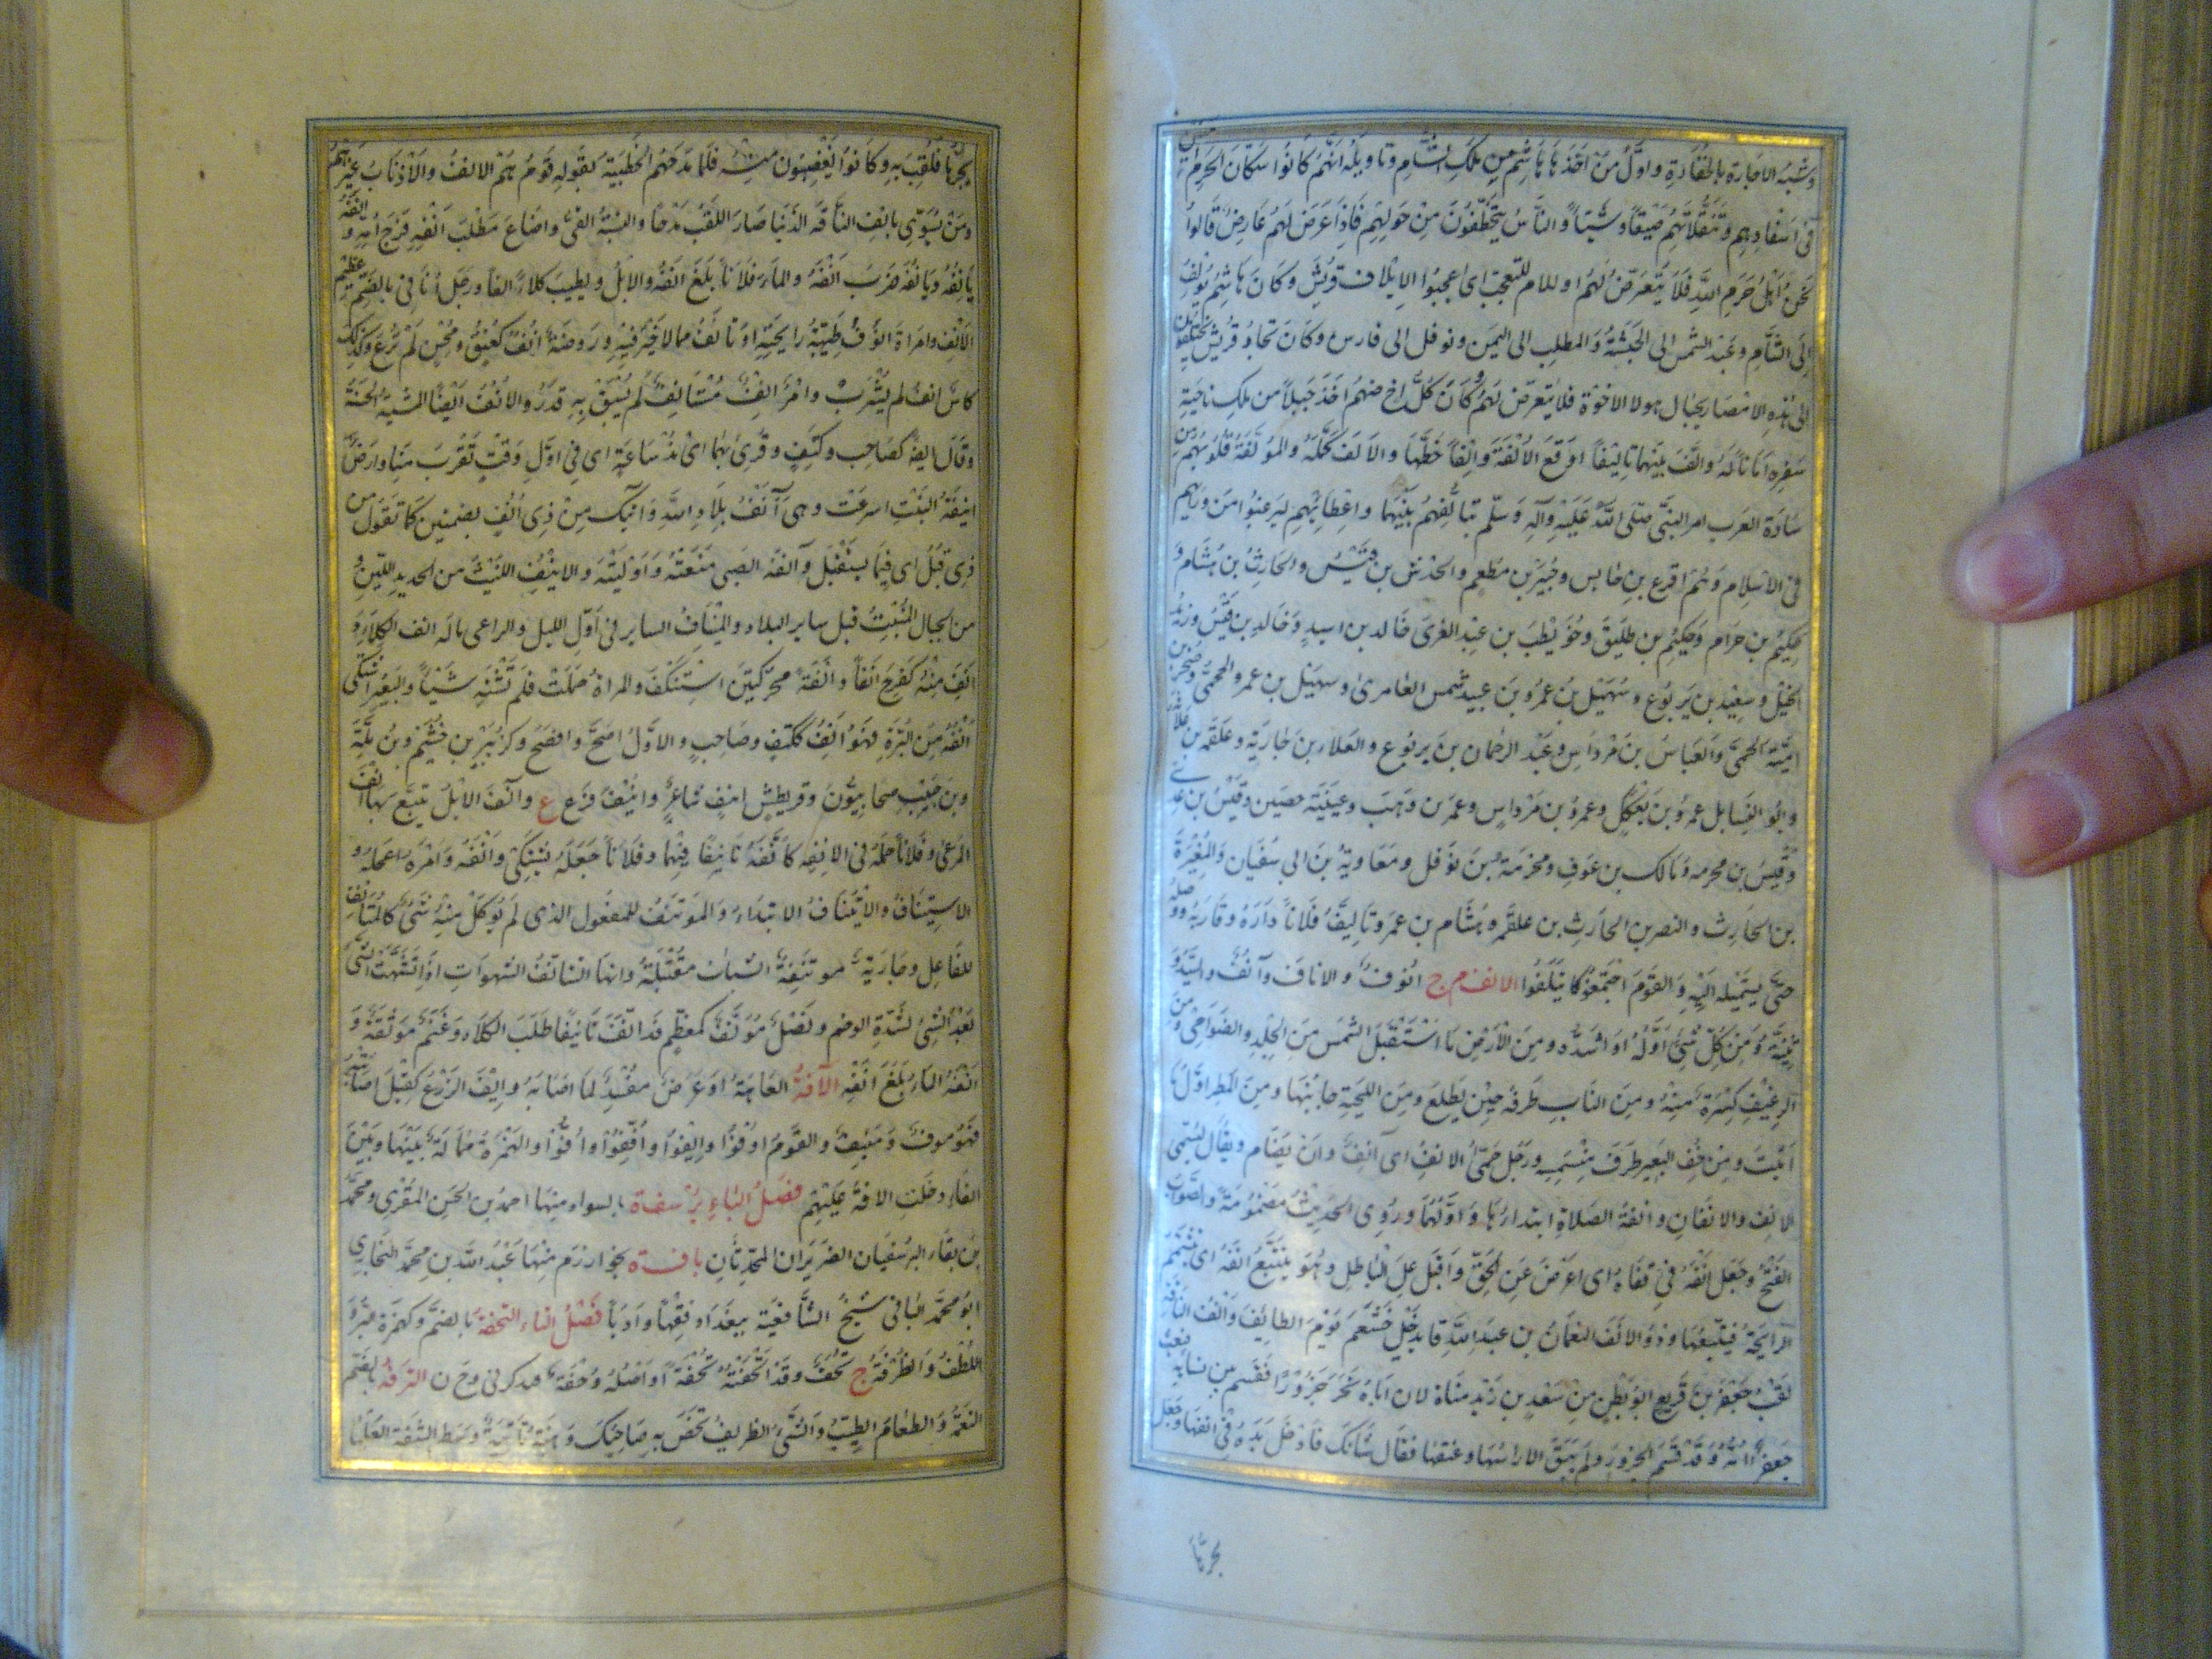 وشبه الاجازة بالخفارة واول من اخذها هاشم من ملك الشام وتاويله انهم كانوا سكان الحرم
فى اسفارهم وتنقلاتهم صيفا وشتاء والناس يتخطفون من حولهم فاذا عرض لهم عارض قالوا
نحن اهل حرم الله فلا يتعرض لهم او للام للتعجب اى اعجبوا الايلاف قريش وكان هاشم يولف
الى الشام وعبد الشمس الى الحبشة والمطلب الى اليمن ونوفل الى فارس وكان تجار قريش يختلفون
الى هذه الامصار بحبال هولا الاخوة فلا يتعرض لهم وكان كل اخ منهم اخذ حبلا من ملك ناحية
سفره امانا له والف بينهما تاليفا اوقع الالفة والفا خطها والالف كمله والمؤلفة قلوبهم من
سادة العرب امر النبى صلى الله عليه وآله وسلم بتالفهم بينهما واعطائهم ليرغبوا من وراهم
فى الاسلام وهم اقرع بن حابس وجبير بن مطعم والجد بن قيس والحارث بن هشام و
حكيم بن حرام وحكيم بن طليق وحويطب بن عبد العزى خالد بن اسيد وخالد بن قيس وزيد
الخيل وسعيد بن يربوع وسهيل بن عمرو بن عبد شمس العامرى وسهيل بن عمرو الجمحى وصخر بن
امية الجمحى والعباس بن مرداس وعبد الرحمان بن يربوع والعلاء بن جارية وعلقمه بن علاثة
وابو السنابل عمرو بن بعكك وعمرو بن مرداس وعمر بن وهب وعيينة حصين وقيس بن عدى
وقيس بن مخرمه ومالك بن عوف ومخرمة بن نوفل ومعاوية بن ابى سفيان والمغيرة
بن الحارث والنصر بن الحارث بن علقمر وهشام بن عمر وتاليف فلانا داره وقاربه ووصله
حتى يستميله اليه والقوم اجتمعوا كايتلفوا الانف م ج انوف والاناف وآنف والسيد و
ثنية ومن كل شئ اوله او اشده ومن الارض ما استقبل الشمس من الجلد والضواحى ومن
الرغيف كسرة منه ومن الناب طرفه حين يطلع ومن اللحية جانبها ومن المطر اول ما
انبت ومن خف البعير طرف منسمه ورجل حمى الانف اى آنف وان يضام ويقال لسمى
الانف والانفان وانفة الصلاة ابتداؤها واولها وروى الحديث مضمومة والصواب
الفتح وجعل انفه فى قفاه اى اعرض عن الحق واقبل على الباطل وهو يتتبع انفه اى يتشمم
الرايحة فيتبعها وذو الانف النعمان بن عبد الله قايد خيل خثعم يوم الطايف وانف الناقة
لقب جعفر بن قريع ابو بطن من سعد بن زيد مناة لان اباه نحر جزورا فقسم بين نسايه فبعث
جعفرا امه وقد قسم الجزور ولم يبق الا راسها وعنقها فقال شانك فادخل يده فى انفها وجعل
يجرها
يجرها فلقب به وكانوا يغضبون منه فلما مدحهم الحطيية بقوله قوم هم الانف والاذناب غيرهم
ومن يسوى بانف الناقة الذنبا صار اللقب مدحا والنسبة انفى واضاع مطلب انفه فرج امه وانفه
يانفه ويانفه ضرب انفه والماء فلانا بلغ انفه والابل وليطيب كلاء انفا ورجل انافى بالضم عظيم
الانف وامراة انوف طيبة رايحته او تانف مما لا خير فيه وروضة انف كعنق ومحسن لم ترع وكذلك
كاس انف لم يشرب وامر انف مستانف لم يسبق به قدر والانف ايضا المشية الحسنة
وقال انفا كصاحب وكتف وقرئ بهما اى مذ ساعة اى فى اول وقت تقرب منا وارض
انيفة النبت اسرعت وهى آنف بلاد الله واتيك من ذى انف بضمتين كما تقول من
ذى قبل اى فيما يستقبل وآنفة الصبى ميعته واوليته والانيف الليث من الحديد اللين و
من الجبال المنبت قبل ساير البلاد والميناف الساير فى اول الليل والراعى ماله انف الكلاء و
انف منه كفرح انفا وانفة محركتين استنكف والمراة حملت فلم تشته شيئا والبعير اشتكى
انفه من البرة فهو انف ككتف وصاحب والاول اصح وافصح وكزبير بن خثيم وبن ملة
وبن حبيب صحابيون وقريط بن انيف شاعر وانيف فرع ع وآنف الابل تتبع بها انف
المرعى وفلانا حمله فى الانفه كانفه تانيفا فيهما وفلانا جعله يشتكى وانفه وامره اعجله و
الاستيناف والايتناف الابتداء والموتنف للمفعول الذى لم يوكل منه شئ كالمتانف
للفاعل وجارية موتنفة الشباب مقتبلة وانها لتتانف الشهوات اذا تشهت الشئ
بعد الشئ لشدة الوحم ونصل مؤنف كمعظم قد انف تانيفا طلب الكلاء وغنم مونفة و
انفه الماء بلغ انفه الآفة العاهة او عرض مفسد لما اصابه وايف الزرع كقيل اصابته
فهو موف ومئيف والقوم اوفوا وايفوا وافوا والهمزة ممالة بينها وبين
الفاء دخلت الافة عليهم فصل الباء برسفاة بالسواد منها احمد بن الحسن المقرى ومحمد
بن بقاء البرسفيان الضريران المحدثان بافة بخوارزم منها عبد الله بن محمد البخارى
ابو محمد البافى شيخ الشافعية ببغداد فقها وادبا فصل التاء التحفة بالضم وكهمزة البر و
اللطف والطرفة ج تحف وقد اتحفته تحفة او اصله وحفة فذكر فى وح ف الترفه بالضم
النعمة والطعام الطيب والشئ الظريف تخص به صاحبك وهنة ناتية وسط الشفة العليا